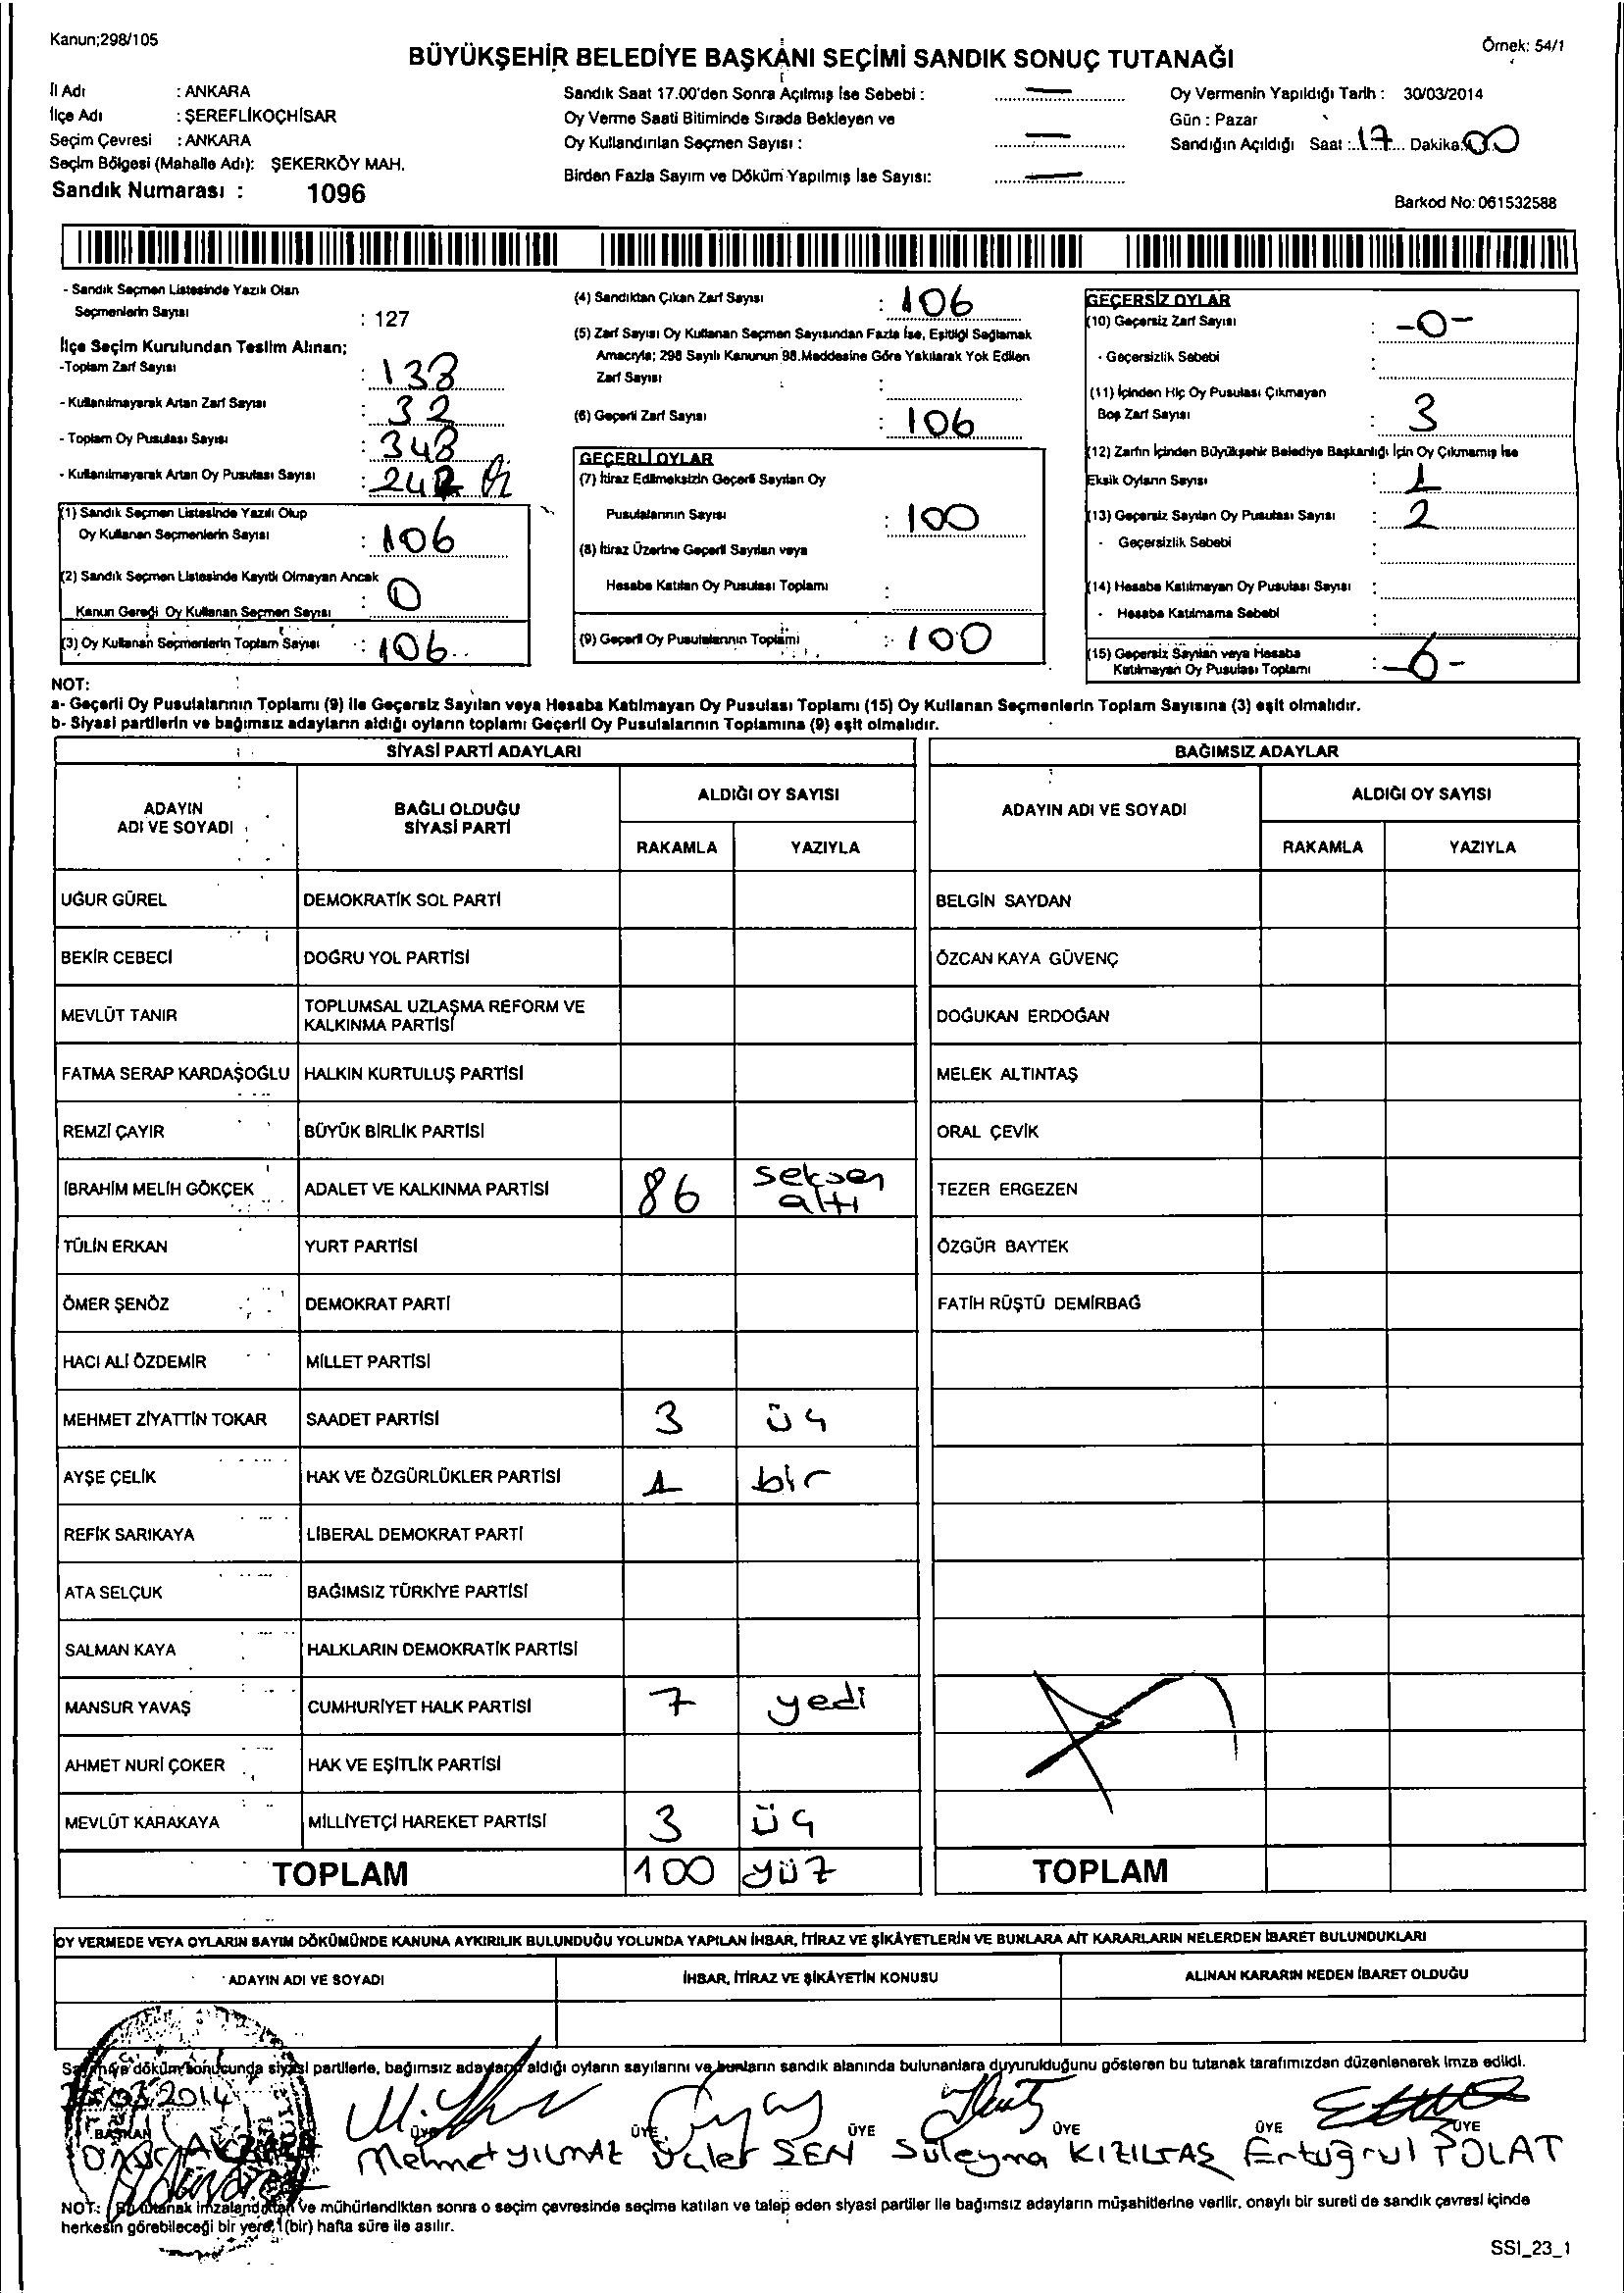 Kanun;298/105
Örnek: 54/1
BÜYÜKŞEHİR BELEDİYE BAŞKANI SEÇİMİ SANDIK SONUÇ TUTANAĞI
İl Adı : ANKARA
İlçe Adı : ŞEREFLİKOÇHİSAR
Seçim Çevresi : ANKARA
Seçim Bölgesi (Mahalle Adı): ŞEKERKÖY MAH.
Sandık Numarası : 1096
Sandık Saat 17.00'den Sonra Açılmış İse Sebebi : —
Oy Verme Saati Bitiminde Sırada Bekleyen ve
Oy Kullandırılan Seçmen Sayısı : —
Birden Fazla Sayım ve Döküm Yapılmış İse Sayısı: —
Oy Vermenin Yapıldığı Tarih : 30/03/2014
Gün : Pazar
Sandığın Açıldığı Saat : 17 Dakika: 00
Barkod No: 061532588
- Sandık Seçmen Listesinde Yazılı Olan
Seçmenlerin Sayısı : 127
İlçe Seçim Kurulundan Teslim Alınan;
-Toplam Zarf Sayısı : 138
- Kullanılmayarak Artan Zarf Sayısı : 32
- Toplam Oy Pusulası Sayısı : 348
- Kullanılmayarak Artan Oy Pusulası Sayısı : 242
(1) Sandık Seçmen Listesinde Yazılı Olup
Oy Kullanan Seçmenlerin Sayısı : 106
(2) Sandık Seçmen Listesinde Kayıtlı Olmayan Ancak
Kanun Gereği Oy Kullanan Seçmen Sayısı : 0
(3) Oy Kullanan Seçmenlerin Toplam Sayısı : 106
(4) Sandıktan Çıkan Zarf Sayısı : 106
(5) Zarf Sayısı Oy Kullanan Seçmen Sayısından Fazla İse, Eşitliği Sağlamak
Amacıyla; 298 Sayılı Kanunun 98.Maddesine Göre Yakılarak Yok Edilen
Zarf Sayısı :
(6) Geçerli Zarf Sayısı : 106
GEÇERLİ OYLAR
(7) İtiraz Edilmeksizin Geçerli Sayılan Oy
Pusulalarının Sayısı : 100
(8) İtiraz Üzerine Geçerli Sayılan veya
Hesaba Katılan Oy Pusulası Toplamı :
(9) Geçerli Oy Pusulalarının Toplamı : 100
GEÇERSİZ OYLAR
(10) Geçersiz Zarf Sayısı : -0-
- Geçersizlik Sebebi :
(11) İçinden Hiç Oy Pusulası Çıkmayan
Boş Zarf Sayısı : 3
(12) Zarfın İçinden Büyükşehir Belediye Başkanlığı İçin Oy Çıkmamış İse
Eksik Oyların Sayısı : 1
(13) Geçersiz Sayılan Oy Pusulası Sayısı : 2
- Geçersizlik Sebebi :
(14) Hesaba Katılmayan Oy Pusulası Sayısı :
- Hesaba Katılmama Sebebi :
(15) Geçersiz Sayılan veya Hesaba
Katılmayan Oy Pusulası Toplamı : -6-
NOT:
a- Geçerli Oy Pusulalarının Toplamı (9) ile Geçersiz Sayılan veya Hesaba Katılmayan Oy Pusulası Toplamı (15) Oy Kullanan Seçmenlerin Toplam Sayısına (3) eşit olmalıdır.
b- Siyasi partilerin ve bağımsız adayların aldığı oyların toplamı Geçerli Oy Pusulalarının Toplamına (9) eşit olmalıdır.
SİYASİ PARTİ ADAYLARI
ADAYIN ADI VE SOYADI
BAĞLI OLDUĞU SİYASİ PARTİ
ALDIĞI OY SAYISI
RAKAMLA YAZIYLA
UĞUR GÜREL DEMOKRATİK SOL PARTİ
BEKİR CEBECİ DOĞRU YOL PARTİSİ
MEVLÜT TANIR TOPLUMSAL UZLAŞMA REFORM VE
KALKINMA PARTİSİ
FATMA SERAP KARDAŞOĞLU HALKIN KURTULUŞ PARTİSİ
REMZİ ÇAYIR BÜYÜK BİRLİK PARTİSİ
İBRAHİM MELİH GÖKÇEK ADALET VE KALKINMA PARTİSİ 86 seksen altı
TÜLİN ERKAN YURT PARTİSİ
ÖMER ŞENÖZ DEMOKRAT PARTİ
HACI ALİ ÖZDEMİR MİLLET PARTİSİ
MEHMET ZİYATTİN TOKAR SAADET PARTİSİ 3 üç
AYŞE ÇELİK HAK VE ÖZGÜRLÜKLER PARTİSİ 1 bir
REFİK SARIKAYA LİBERAL DEMOKRAT PARTİ
ATA SELÇUK BAĞIMSIZ TÜRKİYE PARTİSİ
SALMAN KAYA HALKLARIN DEMOKRATİK PARTİSİ
MANSUR YAVAŞ CUMHURİYET HALK PARTİSİ 7 yedi
AHMET NURİ ÇOKER HAK VE EŞİTLİK PARTİSİ
MEVLÜT KARAKAYA MİLLİYETÇİ HAREKET PARTİSİ 3 üç
TOPLAM 100 yüz
BAĞIMSIZ ADAYLAR
ADAYIN ADI VE SOYADI
ALDIĞI OY SAYISI
RAKAMLA YAZIYLA
BELGİN SAYDAN
ÖZCAN KAYA GÜVENÇ
DOĞUKAN ERDOĞAN
MELEK ALTINTAŞ
ORAL ÇEVİK
TEZER ERGEZEN
ÖZGÜR BAYTEK
FATİH RÜŞTÜ DEMİRBAĞ
TOPLAM
OY VERMEDE VEYA OYLARIN SAYIM DÖKÜMÜNDE KANUNA AYKIRILIK BULUNDUĞU YOLUNDA YAPILAN İHBAR, İTİRAZ VE ŞİKÂYETLERİN VE BUNLARA AİT KARARLARIN NELERDEN İBARET BULUNDUKLARI
ADAYIN ADI VE SOYADI İHBAR, İTİRAZ VE ŞİKÂYETİN KONUSU ALINAN KARARIN NEDEN İBARET OLDUĞU
Sayım ve döküm sonucunda siyasi partilerle, bağımsız adayların aldığı oyların sayılarını ve bunların sandık alanında bulunanlara duyurulduğunu gösteren bu tutanak tarafımızdan düzenlenerek imza edildi.
03.2014
BAŞKAN ÜYE ÜYE ÜYE ÜYE ÜYE ÜYE
Mehmet YILMAZ ŞEN Süleyma KIZILTAŞ Ertuğrul POLAT
NOT: Bu tutanak imzalandıktan ve mühürlendikten sonra o seçim çevresinde seçime katılan ve talep eden siyasi partiler ile bağımsız adayların müşahitlerine verilir, onaylı bir sureti de sandık çevresi içinde
herkesin görebileceği bir yere, 1(bir) hafta süre ile asılır.
SSI_23_1